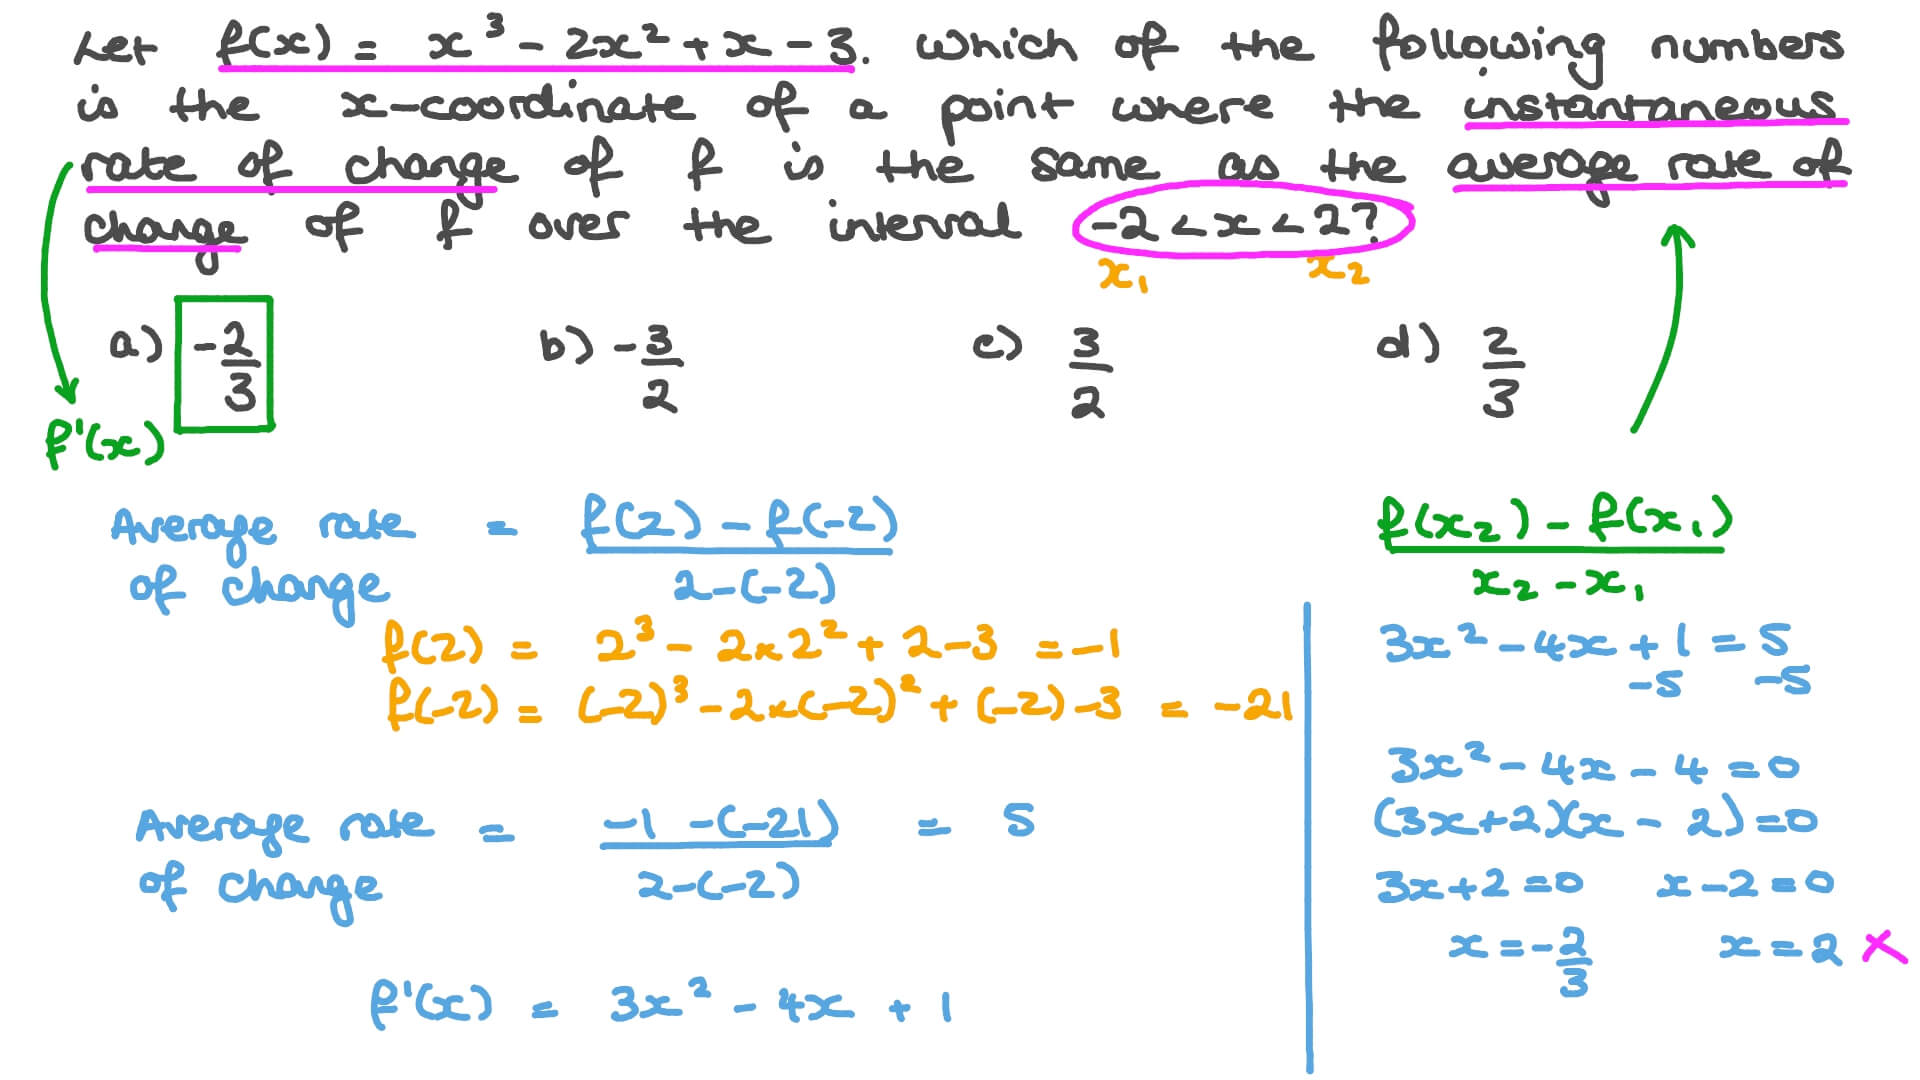 Let f(x) = x³ - 2x² + x - 3. Which of the following numbers
is the x-coordinate of a point where the instantaneous
rate of change of f is the same as the average rate of
change of f over the interval -2 < x < 2?
x₁ x₂
a) -2/3 b) -3/2 c) 3/2 d) 2/3
f'(x)
Average rate of change = f(2) - f(-2) / 2-(-2)
f(2) = 2³ - 2x2² + 2-3 = -1
f(-2) = (-2)³ - 2x(-2)² + (-2) -3 = -21
Average rate of change = -1 -(-21) / 2-(-2) = 5
f'(x) = 3x² - 4x + 1
f(x₂) - f(x₁) / x₂ - x₁
3x² - 4x + 1 = 5
-5 -5
3x² - 4x - 4 = 0
(3x+2)(x - 2) = 0
3x+2 = 0 x - 2 = 0
x = -2/3 x = 2 ×